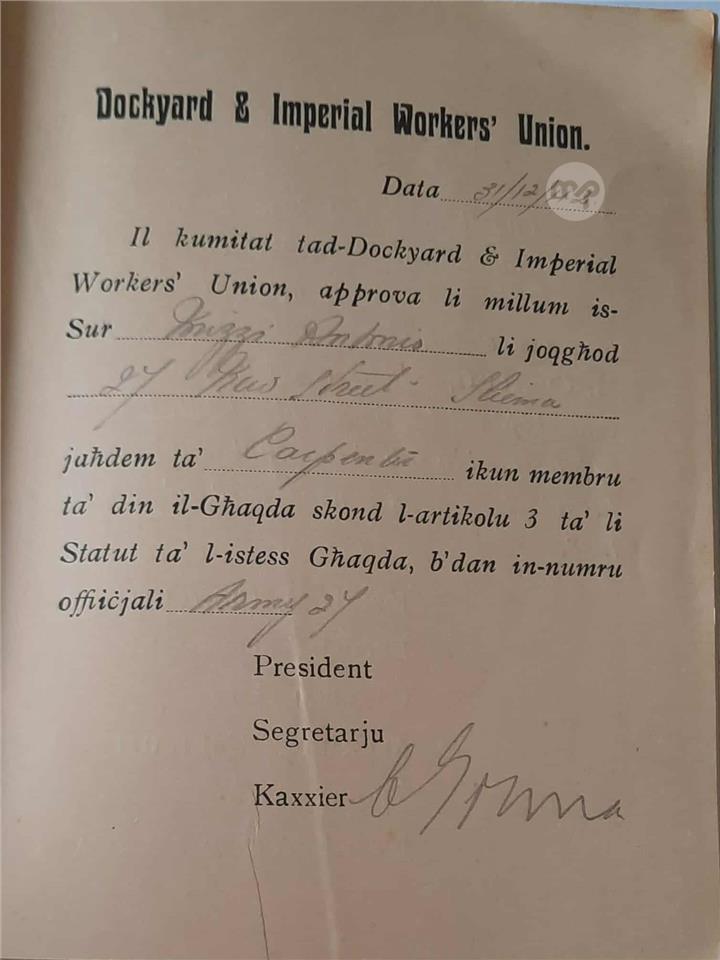 Dockyard & Imperial Workers' Union.
Data 31/12/42
Il kumitat tad-Dockyard & Imperial
Workers' Union, approva li millum is-
Sur Mizzi Antonio li joqgħod
27 New Street - Sliema
jaħdem ta' Carpenter ikun membru
ta' din il-Għaqda skond l-artikolu 3 ta' li
Statut ta' l-istess Għaqda, b'dan in-numru
offiċjali Army 27
President
Segretarju
Kaxxier